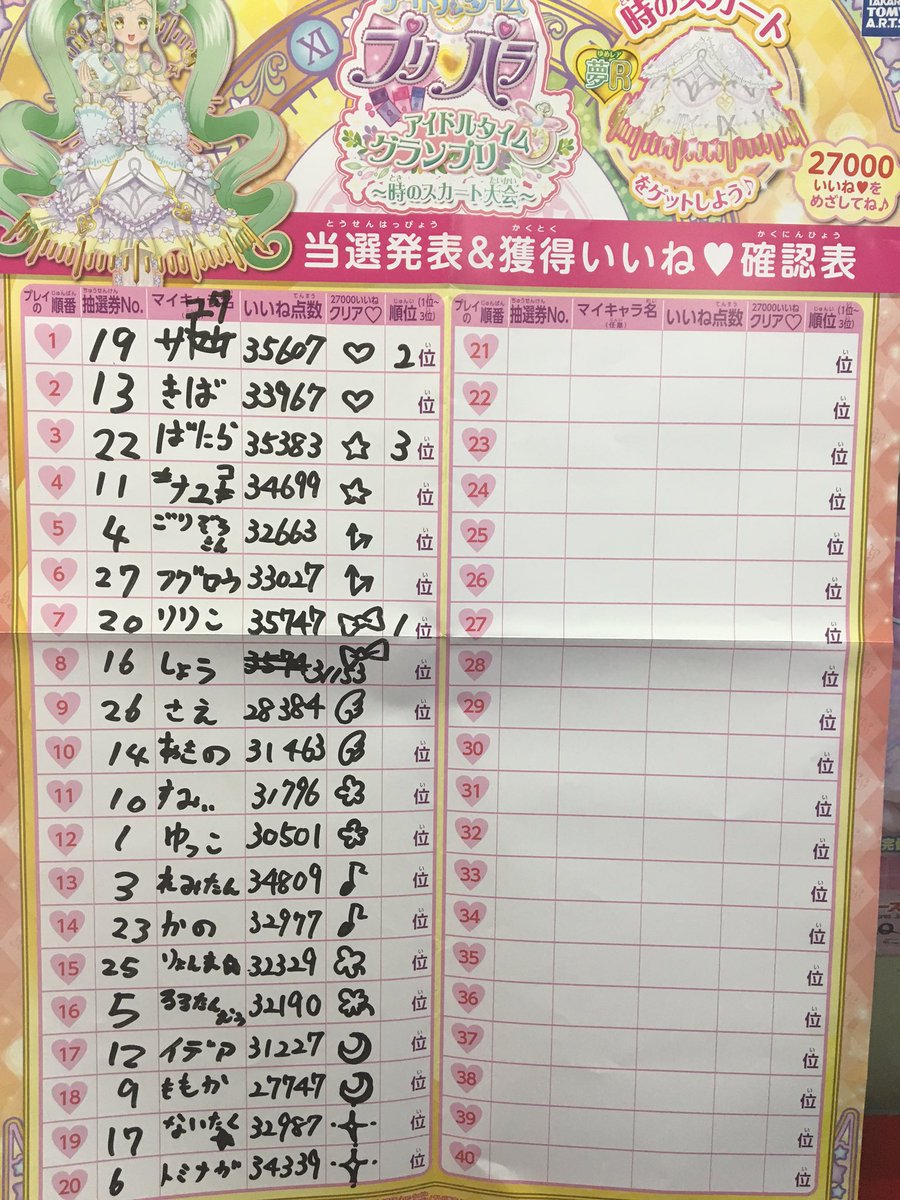 アイドルタイム
プリパラ
アイドルタイム
グランプリ
～時のスカート大会～
時のスカート
ゆめレア
夢R
をゲットしよう♪
27000
いいね♥を
めざしてね♪
TAKARA
TOMY
A.R.T.S
XI
当選発表&獲得いいね♥確認表
プレイの順番 抽選券No. いいね点数 27000いいねクリア♡ 順位(1位~3位)
1 19 35607 ♡ 2位
2 13 きば 33967 ♡ 位
3 22 ばたら 35383 ☆ 3位
4 11 34699 ☆ 位
5 4 32663 位
6 27 フグロウ 33027 位
7 20 りりこ 35747 1位
8 16 しょう 31153 位
9 26 さえ 28384 位
10 14 31463 位
11 10 31796 位
12 1 ゆっこ 30501 位
13 3 れみたん 34809 ♪ 位
14 23 かの 32977 ♪ 位
15 25 32329 位
16 5 32190 位
17 12 イデア 31227 位
18 9 ももか 27747 位
19 17 ないたく 32987 位
20 6 トミナガ 34339 位
プレイの順番 抽選券No. マイキャラ名(任意) いいね点数 27000いいねクリア♡ 順位(1位~3位)
21 位
22 位
23 位
24 位
25 位
26 位
27 位
28 位
29 位
30 位
31 位
32 位
33 位
34 位
35 位
36 位
37 位
38 位
39 位
40 位